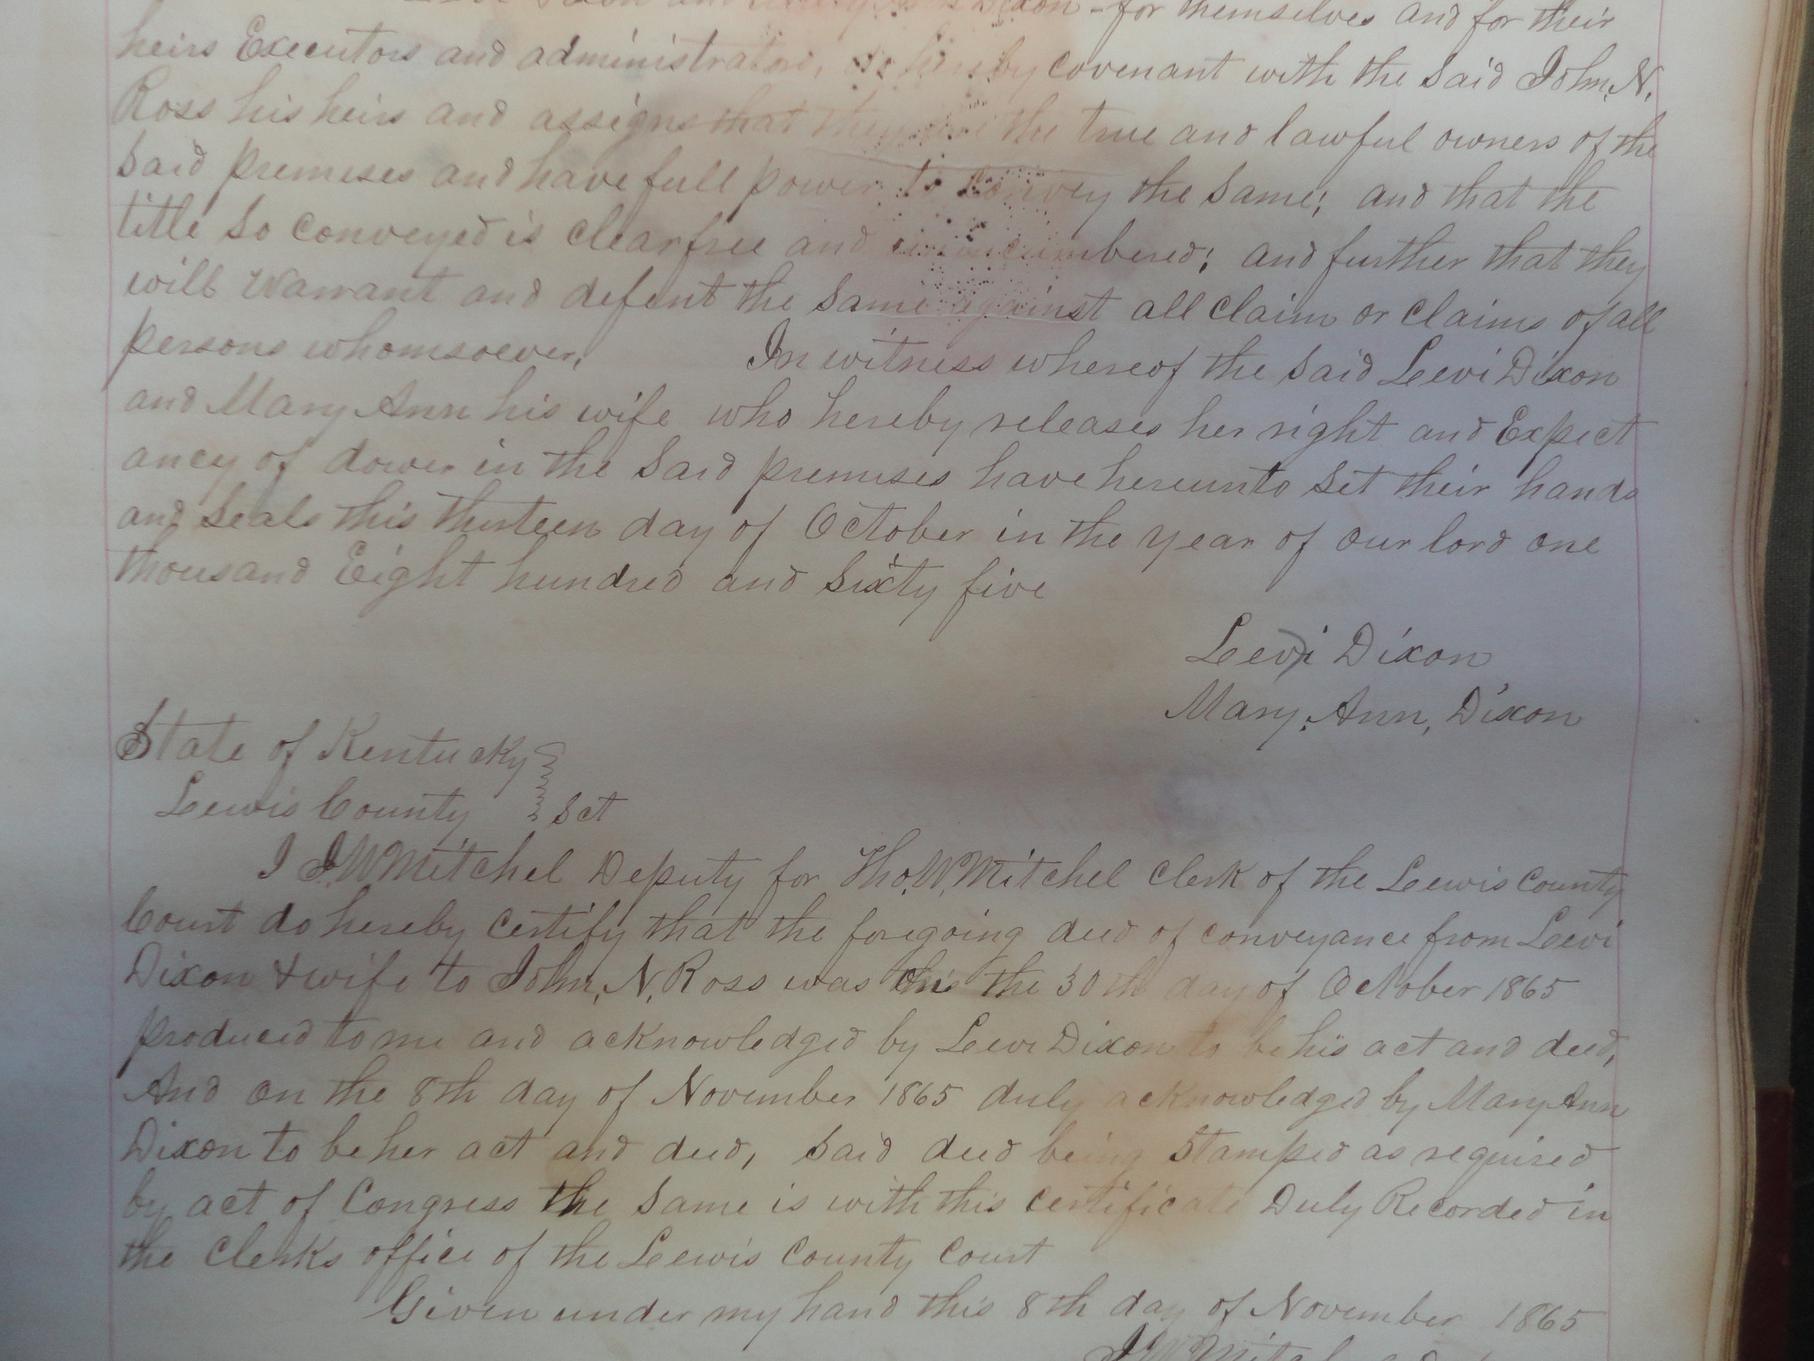 Dixon and Mary Ann Dixon - for themselves and for their
heirs Executors and administrators, do hereby covenant with the said John, N,
Ross his heirs and assigns that they are the true and lawful owners of the
said premises and have full power to convey the same; and that the
title so conveyed is clear free and unincumbered; and further that they
will Warrant and defent the same against all claim or claims of all
persons whomsoever, In witness whereof the said Leevi Dixon
and Mary Ann his wife who hereby releases her right and Expect
ancy of dower in the said premises have hereunto set their hands
and seals this thirteen day of October in the year of our lord one
thousand Eight hundred and sixty five
Leevi Dixon
Mary, Ann, Dixon
State of Kentucky
Lewis County } Sct
I J.W Mitchel Deputy for Tho,W,Mitchel clerk of the Leewis county
Court do hereby certify that the foregoing deed of conveyance from Leevi
Dixon & wife to John, N, Ross was the 30th day of October 1865
produced to me and acknowledged by Leevi Dixon to be his act and deed,
And on the 8th day of November 1865 duly acknowledged by Mary Ann
Dixon to be her act and deed, said deed being stamped as required
by act of Congress the same is with this certificate Duly Recorded in
the clerks office of the Leewis county court
Given under my hand this 8th day of November 1865
J W Mitchel